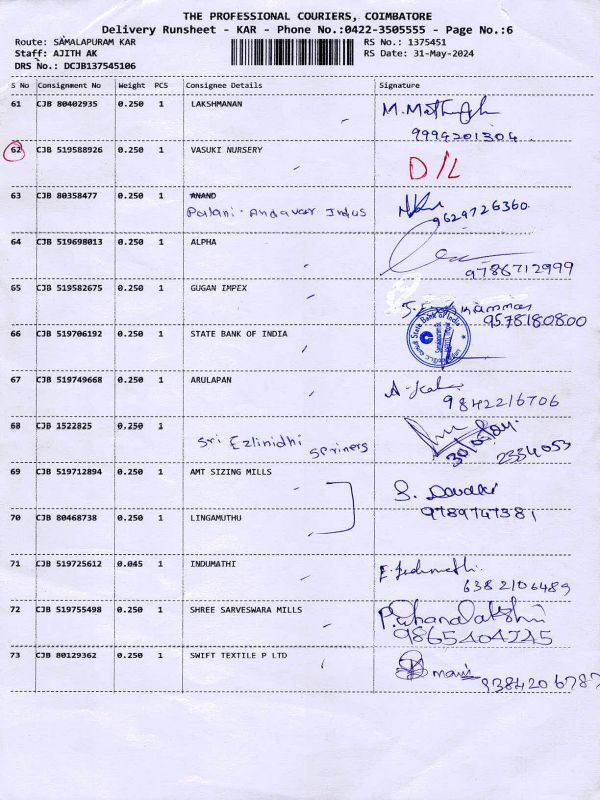 THE PROFESSIONAL COURIERS, COIMBATORE
Delivery Runsheet - KAR - Phone No.:0422-3505555 - Page No.:6
Route: SAMALAPURAM KAR RS No.: 1375451
Staff: AJITH AK RS Date: 31-May-2024
DRS No.: DCJB137545106
S No Consignment No Weight PCS Consignee Details Signature
61 CJB 80402935 0.250 1 LAKSHMANAN
9994201304
62 CJB 519588926 0.250 1 VASUKI NURSERY D/L
63 CJB 80358477 0.250 1 ANAND
Palani. Andavar Indus 9629726360
64 CJB 519698013 0.250 1 ALPHA
9786712999
65 CJB 519582675 0.250 1 GUGAN IMPEX
9578180800
66 CJB 519706192 0.250 1 STATE BANK OF INDIA State Bank of India
67 CJB 519749668 0.250 1 ARULAPAN
9842216706
68 CJB 1522825 0.250 1
Sri Ezlinidhi Spriners
2334053
69 CJB 519712894 0.250 1 AMT SIZING MILLS
S. Davaki
9789747381
70 CJB 80468738 0.250 1 LINGAMUTHU
71 CJB 519725612 0.045 1 INDUMATHI
6382106489
72 CJB 519755498 0.250 1 SHREE SARVESWARA MILLS P. Dhanalakshmi
9865404245
73 CJB 80129362 0.250 1 SWIFT TEXTILE P LTD
9384206787